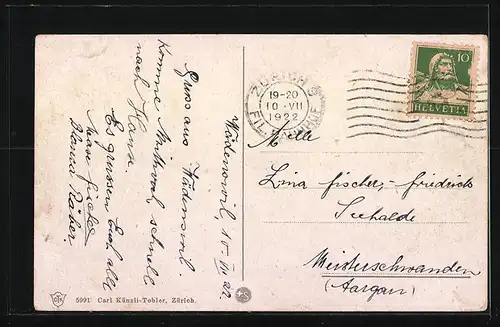 Wädenswil 10-VII 22.
Gruss aus Wädenswil.
Komme Mittwoch schnell
nach Hause.
Es grüssen Euch alle
Blanca Räber
ZÜRICH
19-20
10·VII
1922
10
HELVETIA
Mlle
Lina Fischer-Friedrich
Seehalde
Meisterschwanden
(Aargau)
5991 Carl Künzli-Tobler, Zürich.